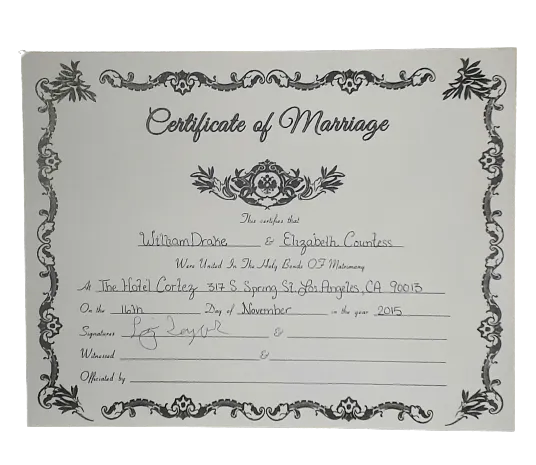 Certificate of Marriage
This certifies that
William Drake & Elizabeth Countess
Were United In The Holy Bonds Of Matrimony
At The Hotel Cortez 317 S. Spring St. Los Angeles, CA 90013
On the 16th Day of November in the year 2015
Signatures &
Witnessed &
Officiated by